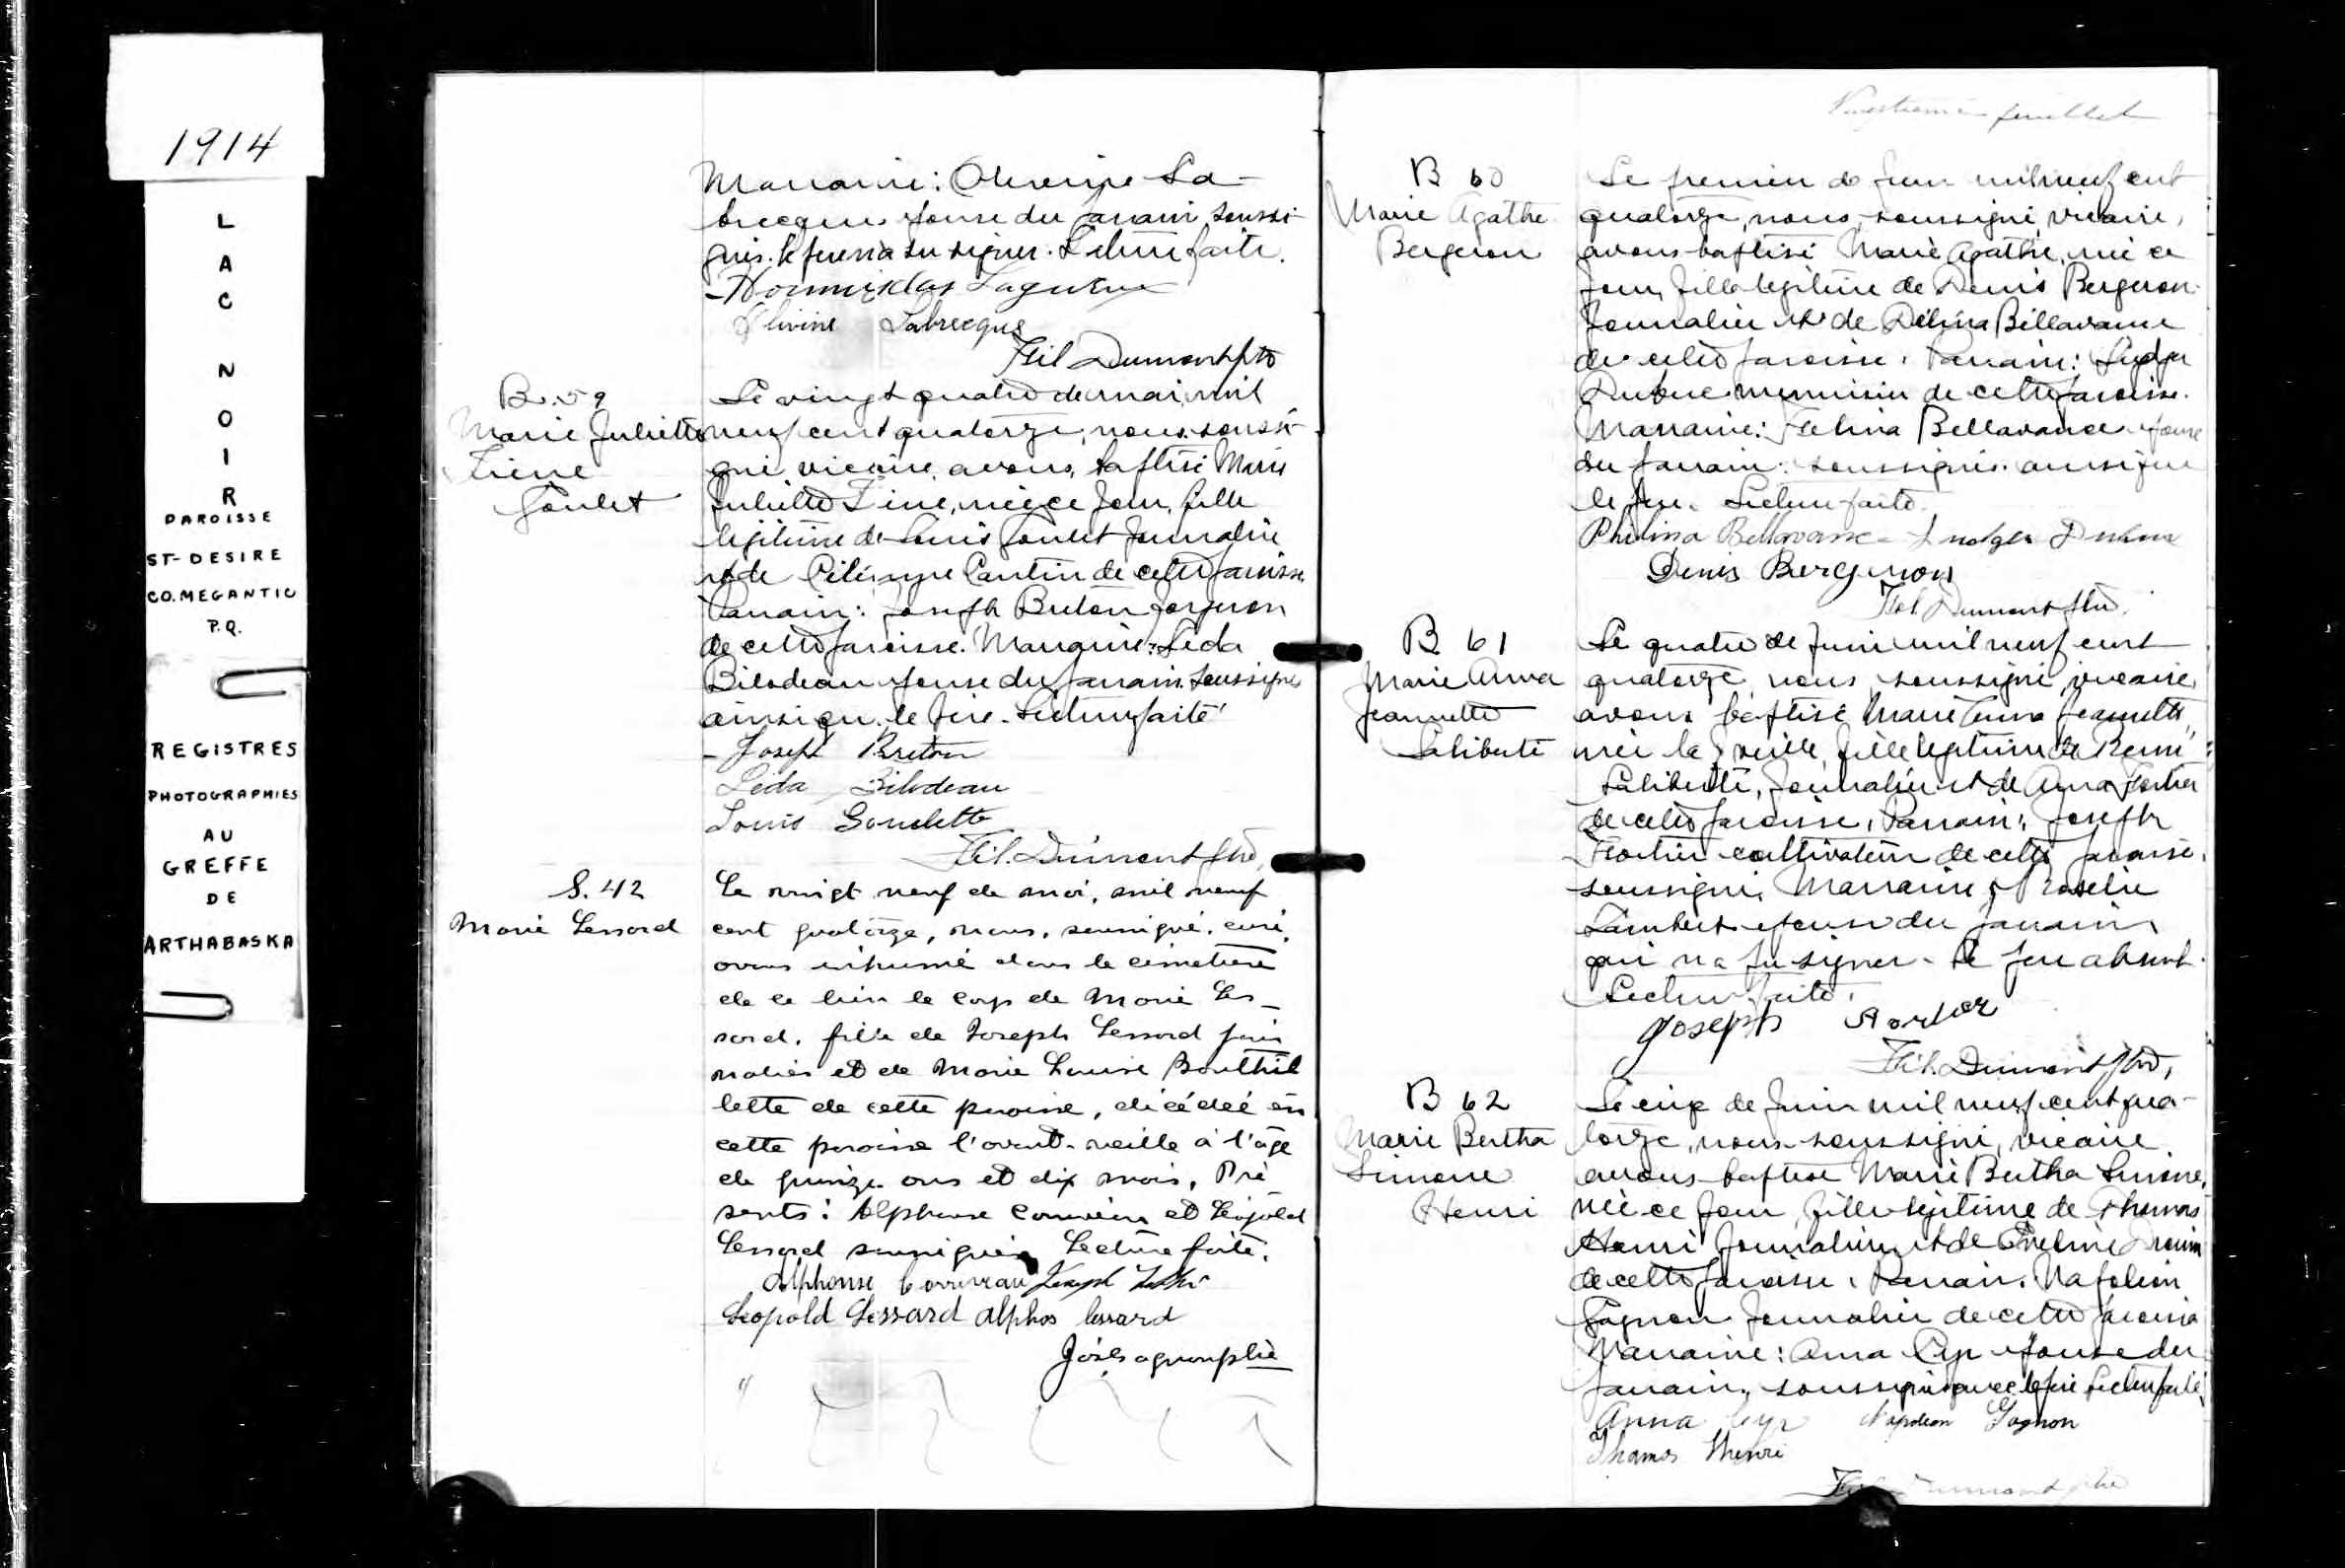 1914
LAC NOIR
PAROISSE
ST-DESIRE
CO. MEGANTIC
P.Q.
REGISTRES
PHOTOGRAPHIES
AU
GREFFE
DE
ARTHABASKA
Marraine: Olivine La-
brecque épouse du parrain soussi-
gnés. le père n'a su signer. Lecture faite.
Olivine Labrecque
Fél. Dumont ptre
B. 59
Marie Juliette
Goulet
Le vingt quatre de mai mil
neuf cent quatorze, nous, soussi-
gné vicaire, avons baptisé Marie
Juliette née ce jour, fille
légitime de Louis Goulet journalier
et de Cantin de cette paroisse.
Parrain: Joseph Breton forgeron
de cette paroisse. Marraine: Léda
Bilodeau épouse du parrain soussignés
ainsi que le père. Lecture faite
Joseph Breton
Léda Bilodeau
Louis Goulette
Fél. Dumont ptre,
S. 42
Marie Lessard
Le vingt neuf de mai, mil neuf
cent quatorze, nous, soussigné, curé,
avons inhumé dans le cimetière
de ce lieu le corps de Marie Les-
sard, fille de Joseph Lessard jour
nalier et de Marie Louise Bouthil
lette de cette paroisse, décédée en
cette paroisse l'avant-veille à l'âge
de quinze ans et dix mois. Pré
sents: Alphonse Corriveau et Léopold
Lessard soussignés Lecture faite.
Alphonse Corriveau
Léopold Lessard Alphos lessard
Vingtième feuillet
B 60
Marie Agathe
Bergeron
Le premier de juin mil neuf cent
quatorze, nous, soussigné, vicaire,
avons baptisé Marie Agathe, née ce
jour, fille légitime de Denis Bergeron
journalier et de Délina Bellavance
de cette paroisse. Parrain: Ludger
Dubuc menuisier de cette paroisse.
Marraine: Bellavance épouse
du parrain soussignés ainsi que
le père. Lecture faite.
Philina Bellavance Ludger Dubuc
Denis Bergeron
Fél. Dumont ptre.
B 61
Marie Anna
Jeannette
Laliberté
Le quatre de juin mil neuf cent
quatorze nous, soussigné, vicaire,
avons baptisé Marie Anna Jeannette,
née la veille, fille légitime de Rémi
Laliberté, journalier et de Anna Fortier
de cette paroisse. Parrain: Joseph
Fortier cultivateur de cette paroisse.
soussigné, Marraine: Rosalie
Lambert épouse du parrain
qui n'a pu signer. le père absent.
Lecture faite.
Joseph Fortier
Fél. Dumont ptre,
B 62
Marie Bertha
Simone
Henri
Le cinq de juin mil neuf cent qua-
torze, nous soussigné, vicaire
avons baptisé Marie Bertha Simone,
née ce jour, fille légitime de Thomas
Henri journalier et de Eveline Drouin
de cette paroisse. Parrain. Napoléon
Gagnon journalier de cette paroisse
Marraine: Anna Cyr épouse du
parrain, soussignés avec le père Lecture faite.
Anna Cyr Napoléon Gagnon
Thomas Henri